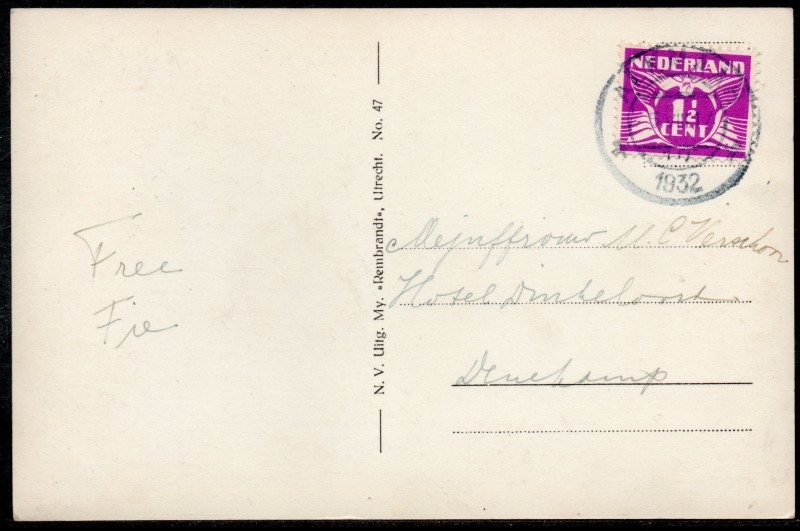 NEDERLAND
1½
CENT
1932
N. V. Uitg. My. »Rembrandt«, Utrecht. No. 47
Free
Fie
Mejuffrouw M. C. Verschoor
Hotel Dinkeloord
Denekamp